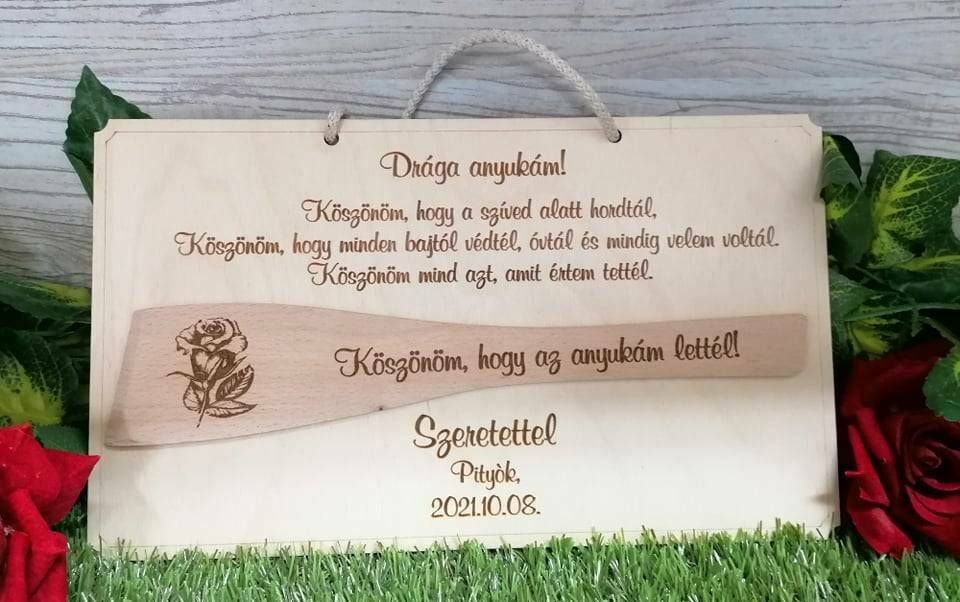 Drága anyukám!
Köszönöm, hogy a szíved alatt hordtál,
Köszönöm, hogy minden bajtól védtél, óvtál és mindig velem voltál.
Köszönöm mind azt, amit értem tettél.
Köszönöm, hogy az anyukám lettél!
Szeretettel
Pityòk,
2021.10.08.